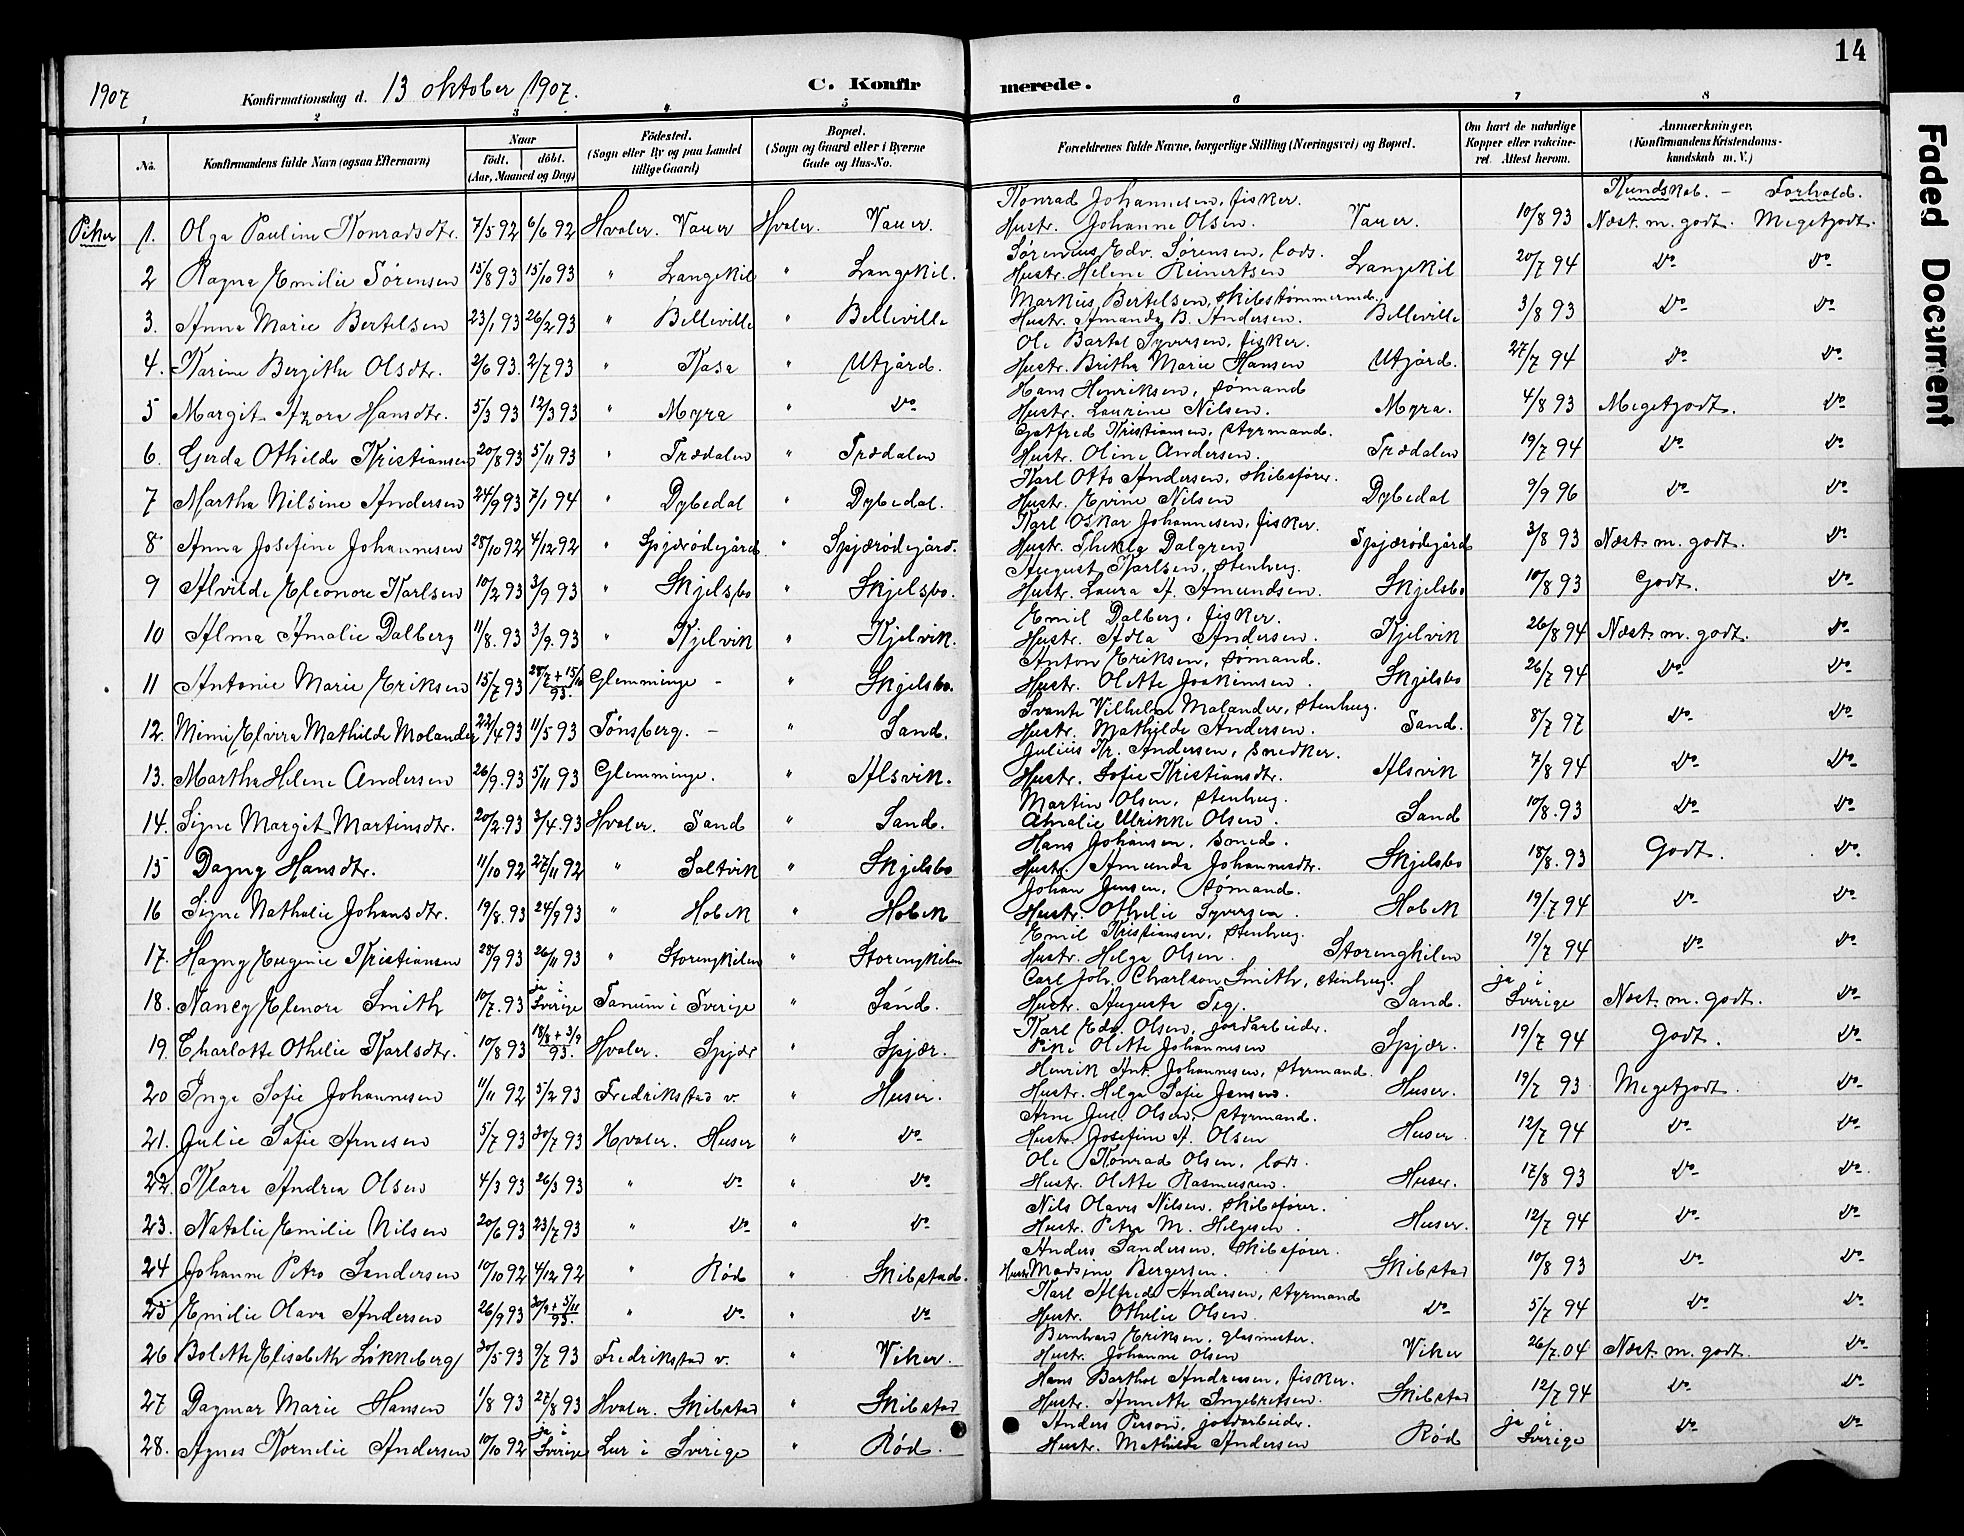 14
1907
Konfirmationsdag d. 13 oktober 1907.
C. Konfirmerede.
1 2 3 4 5 6 7 8
No.
Konfirmandens fulde Navn (ogsaa Efternavn)
Naar
født. døbt.
(Aar, Maaned og Dag)
Fødested.
(Sogn eller By og paa Landet
tillige Gaard)
Bopæl.
(Sogn og Gaard eller i Byerne
Gade og Hus-No.
Forældrenes fulde Navne, borgerlige Stilling (Næringsvei) og Bopæl.
Om havt de naturlige
Kopper eller vakcine-
ret. Attest herom.
Anmærkninger.
(Konfirmandens Kristendoms-
kundskab m. V.)
Kundskab. - Forhold.
Konrad Johannesen, fisker.
Piker 1. Olga Pauline Konradsdtr. 7/5 92 6/6 92 Hvaler. Vauer Hvaler. Vauer. Hustr. Johanne Olsen. Vauer. 10/8 93 Næst. m. godt. Megetgodt.
Sørenius Edv. Sørensen, lods.
2 Ragna Emilie Sørensen 15/8 93 15/10 93 " Langekil " Langekil. Hustr. Helene Reinertsen Langekil 20/7 94 Do Do
Markus Bertelsen, skibstømmermd.
3. Anna Marie Bertelsen 23/1 93 26/2 93 " Belleville " Belleville Hustr. Amanda B. Andersen. Belleville 3/8 93 Do Do
Ole Bartol Syversen, fisker.
4. Karine Bergithe Olsdtr. 2/6 93. 2/7 93 " Kasa " Utgård. Hustr. Britha Marie Hansen Utgård. 27/7 94 Do Do
Hans Henriksen, sømand
5 Margit Azora Hansdtr. 5/3 93 12/3 93 " Myra " Do Hustr. Laurine Nilsen. Myra. 4/8 93 Megetgodt. Do
Gotfred Kristiansen, styrmand.
6. Gerda Othilde Kristiansen 20/8 93 5/11 93 " Trædalen " Trædalen Hustr. Oline Andersen. Trædalen 19/7 94 Do Do
Karl Otto Andersen, skibsfører.
7 Martha Nilsine Andersen 24/9 93 7/1 94 " Dybedal " Dybedal. Hustr. Evine Nilsen Dybedal 9/9 96 Do Do
Karl Oskar Johannesen, fisker.
8 Anna Josefine Johannesen 28/10 92 4/12 92 " Spjærødegård " Spjærødegård. Hustr. Thekla Dalgren Spjærødegård 3/8 93 Næst. m. godt. Do
August Karlsen, stenhug.
9 Alvilde Eleonore Karlsen 10/2 93 3/9 93 " Skjelsbo " Skjelsbo. Hustr. Laura A. Amundsen. Skjelsbo 10/8 93 Godt. Do
Emil Dalberg, fisker.
10 Alma Amalie Dalberg 11/8. 93 3/9. 93 " Kjelvik " Kjelvik. Hustr. Adla Andersen. Kjelvik 26/8 94 Næst. m. godt. Do
Anton Eriksen, sømand.
11 Antonie Marie Eriksen 15/7 93 28/7 + 15/10 93. Glemminge - " Skjelsbo. Hustr. Olette Joakimsen. Skjelsbo 26/7 94 Do Do
Svante Vilhelm Molander, stenhug.
12. Mimi Elvira Mathilde Molander 22/4 93 11/5 93 Tønsberg. - " Sand. Hustr. Mathilde Andersen. Sand. 8/7 97 Do Do
Julius Kr. Andersen, snedker.
13. Martha Helene Andersen 26/9. 93 5/11 93 Glemminge. " Alsvik. Hustr. Sofie Kristiansdtr. Alsvik 7/8 94 Do Do
Martin Olsen, stenhug.
14. Signe Margit Martinsdtr. 20/2. 93 3/4. 93 Hvaler. Sand " Sand. Amalie Ulrikke Olsen. Sand 10/8. 93 Do Do
Hans Johansen, smed.
15 Dagny Hansdtr. 11/10 92 27/11 92 " Saltvik " Skjelsbo Hustr. Amunda Johannesdtr. Skjelsbo 18/8. 93 Godt. Do
Johan Jensen, sømand.
16 Signe Nathalie Johansdtr. 19/8. 93 24/9 93 " Holek " Holek Hustr. Othelie Syversen. Holek 19/7 94 Do Do
Emil Kristiansen, stenhug.
17. Hagny Eugenie Kristiansen 28/9 93 26/11 93 " Storengkilen " Storengkilen Hustr. Helga Olsen. Storengkilen 19/7 94 Do Do
Carl Joh. Charlson Smith, stenhug.
18. Nancy Elenora Smith 10/7. 93 ja i Sverige Tanum i Sverige " Sand. Hustr. Augusta Teg. Sand. ja i Sverige Næst. m. godt. Do
Karl Edv. Olsen, jordarbeider.
19. Charlotte Othelie Karlsdtr. 10/8 93 18/8 + 3/9 93. Hvaler. Spjær " Spjær. Pike Olette Johannesen Spjær. 19/7 94 Godt. Do
Henrik Ant. Johannesen, styrmand.
20 Inga Sofie Johannesen 11/11 92 5/2 93 Fredrikstad v. " Huser. Hustr. Helga Sofie Jensen. Huser. 19/7 93 Megetgodt. Do
Arne Jul. Olsen, styrmand.
21. Julie Sofie Arnesen 5/7 93 30/7 93 Hvaler. Huser " Do Hustr. Josefine A. Olsen Huser. 12/7 94 Do Do
Ole Konrad Olsen, lods.
22. Klara Andrea Olsen 4/3 93 26/3 93 " Do " Do Hustr. Olette Rasmussen. Huser. 17/8 93 Do Do
Nils Olaves Nilsen, skibsfører.
23. Natalie Emilie Nilsen 20/6 93 23/7 93 " Do " Do Hustr. Petra M. Helgesen. Huser. 12/7 94 Do Do
Anders Sandersen, skibsfører.
24 Johanne Petra Sandersen 10/10 92 4/12 92 " Rød " Skibstad. Hustr. Madsine Bergersen. Skibstad 10/8 93 Do Do
Karl Alfred Andersen, styrmand
25 Emilie Olava Andersen 26/9 93 30/9 + 5/11 93. " Do " Do Hustr. Othelie Olsen. Do 5/7 94 Do Do
Bernhard Eriksen, glasmester.
26 Bolette Elisabeth Løkkeberg 30/5 93 9/7 93 Fredrikstad v. " Viker. Hustr. Johanne Olsen Viker 26/7. 04 Næst. m. godt. Do
Hans Barthol Andreasen, fisker.
27 Dagmar Marie Hansen 1/8 93 27/8 93 Hvaler. Skibstad " Skibstad Hustr. Annette Ingebretsen. Skibstad 12/7 94 Do Do
Anders Person, jordarbeider.
28. Agnes Kornelie Andersen 10/10 92 ja i Sverige Lur i Sverige " Rød. Hustr. Mathilde Andersen Rød ja i Sverige Do Do
Faded Document